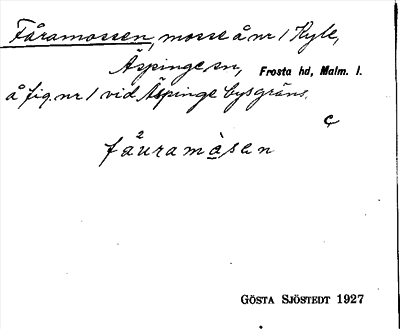 Fåramossen, mosse å nr 1 Kyle,
Äspinge sn, Frosta hd, Malm. l.
å fig. nr 1 vid Äspinge bysgräns.
fåuramòsen
GÖSTA SJÖSTEDT 1927